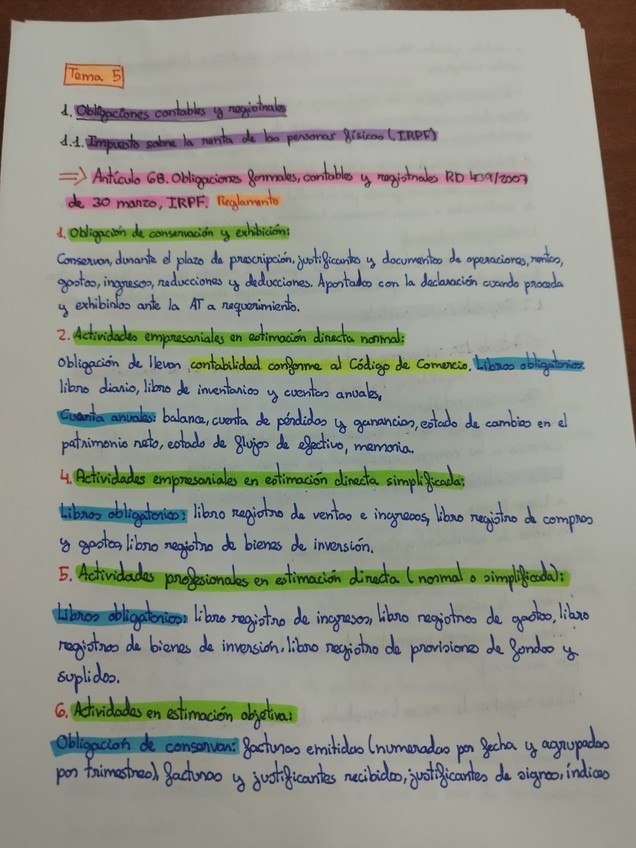 Tema 5
1. Obligaciones contables y registrales
1.1. Impuesto sobre la renta de las personas físicas (IRPF)
=> Artículo 68. Obligaciones formales, contables y registrales RD 439/2007
de 30 marzo, IRPF. Reglamento
1. Obligación de conservación y exhibición:
Conservar, durante el plazo de prescripción, justificantes y documentos de operaciones, rentas,
gastos, ingresos, reducciones y deducciones. Aportados con la declaración cuando proceda
y exhibirlos ante la AT a requerimiento.
2. Actividades empresariales en estimación directa normal:
Obligación de llevar contabilidad conforme al Código de Comercio. Libros obligatorios:
libro diario, libro de inventarios y cuentas anuales,
Cuenta anuales: balance, cuenta de pérdidas y ganancias, estado de cambios en el
patrimonio neto, estado de flujos de efectivo, memoria.
4. Actividades empresariales en estimación directa simplificada:
Libros obligatorios: libro registro de ventas e ingresos, libro registro de compras
y gastos, libro registro de bienes de inversión.
5. Actividades profesionales en estimación directa (normal o simplificada):
Libros obligatorios: libro registro de ingresos, libro registros de gastos, libro
registros de bienes de inversión, libro registro de provisiones de fondos y
suplidos.
6. Actividades en estimación objetiva:
Obligación de conservar: facturas emitidas (numeradas por fecha y agrupadas
por trimestres), facturas y justificantes recibidos, justificantes de signos, índices